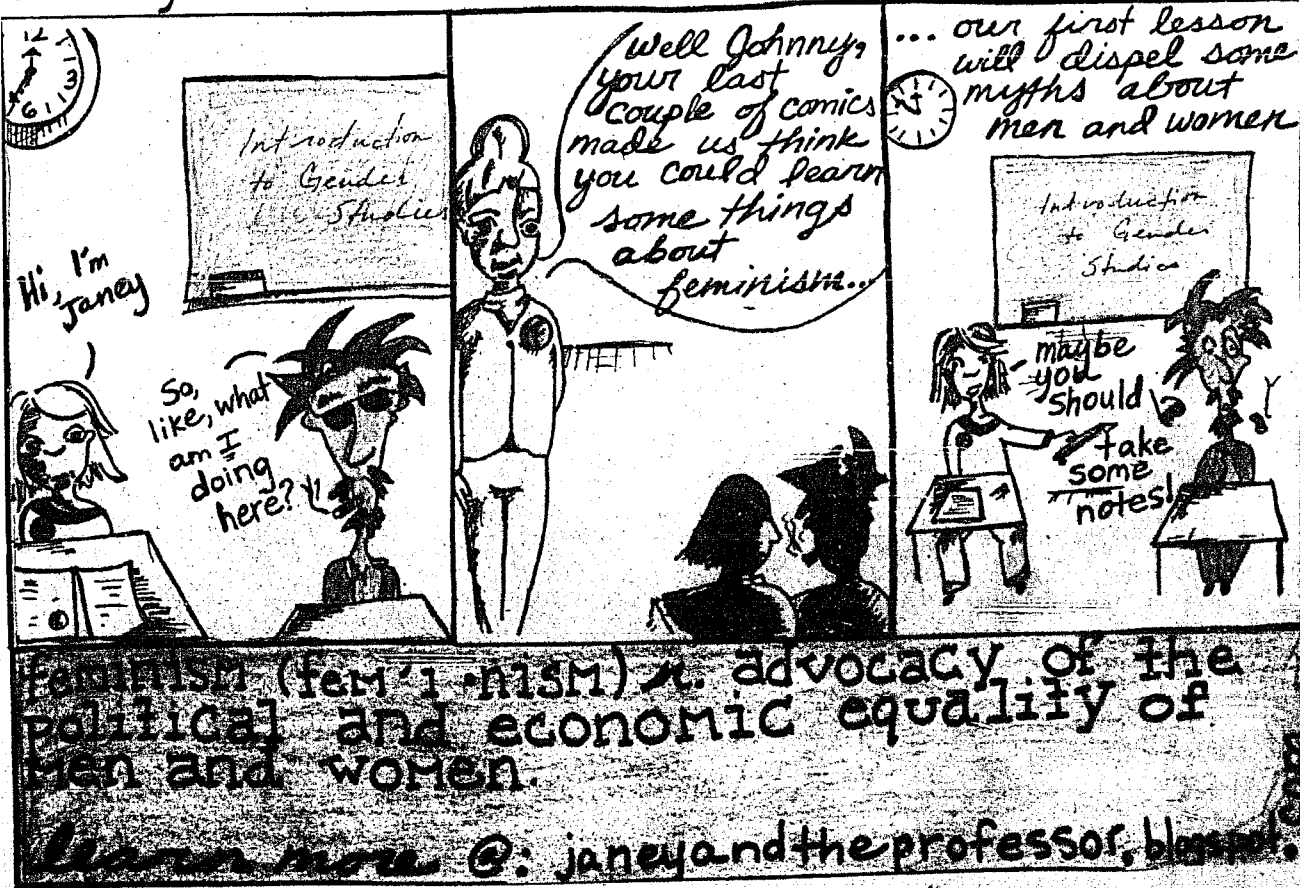 12
3
6
Introduction
to Gender
Studies
Hi, I'm
Janey
So,
like, what
am I
doing
here?
Well Johnny,
your last
couple of comics
made us think
you could learn
some things
about
feminism...
... our first lesson
will dispel some
myths about
men and women
Introduction
to Gender
Studies
maybe
you
should
take
some
notes!
feminism (fem'i•nism) n. advocacy of the
political and economic equality of
men and women.
learn more @: janeyandtheprofessor.blogspot.